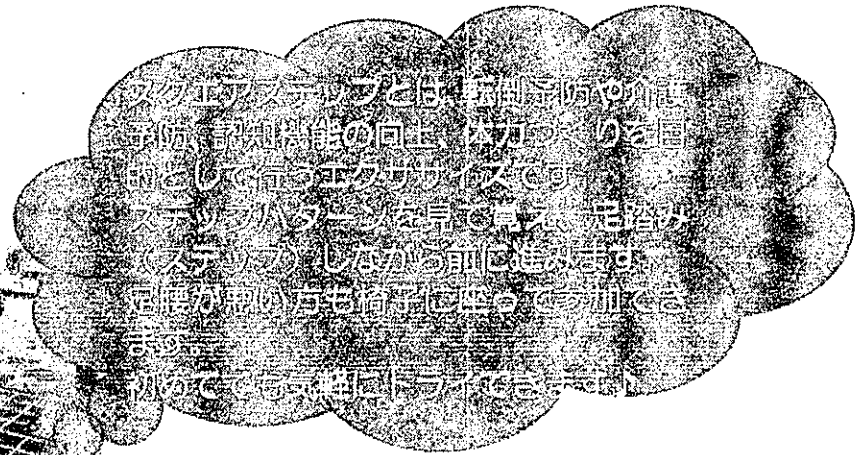 スクエアステップとは、転倒予防や介護
予防、認知機能の向上、体力づくりを目
的として行うエクササイズです。
ステップパターンを見て覚え、足踏み
（ステップ）しながら前に進みます。
足腰が悪い方も椅子に座って参加でき
ます。
初めてでも気軽にトライできます！